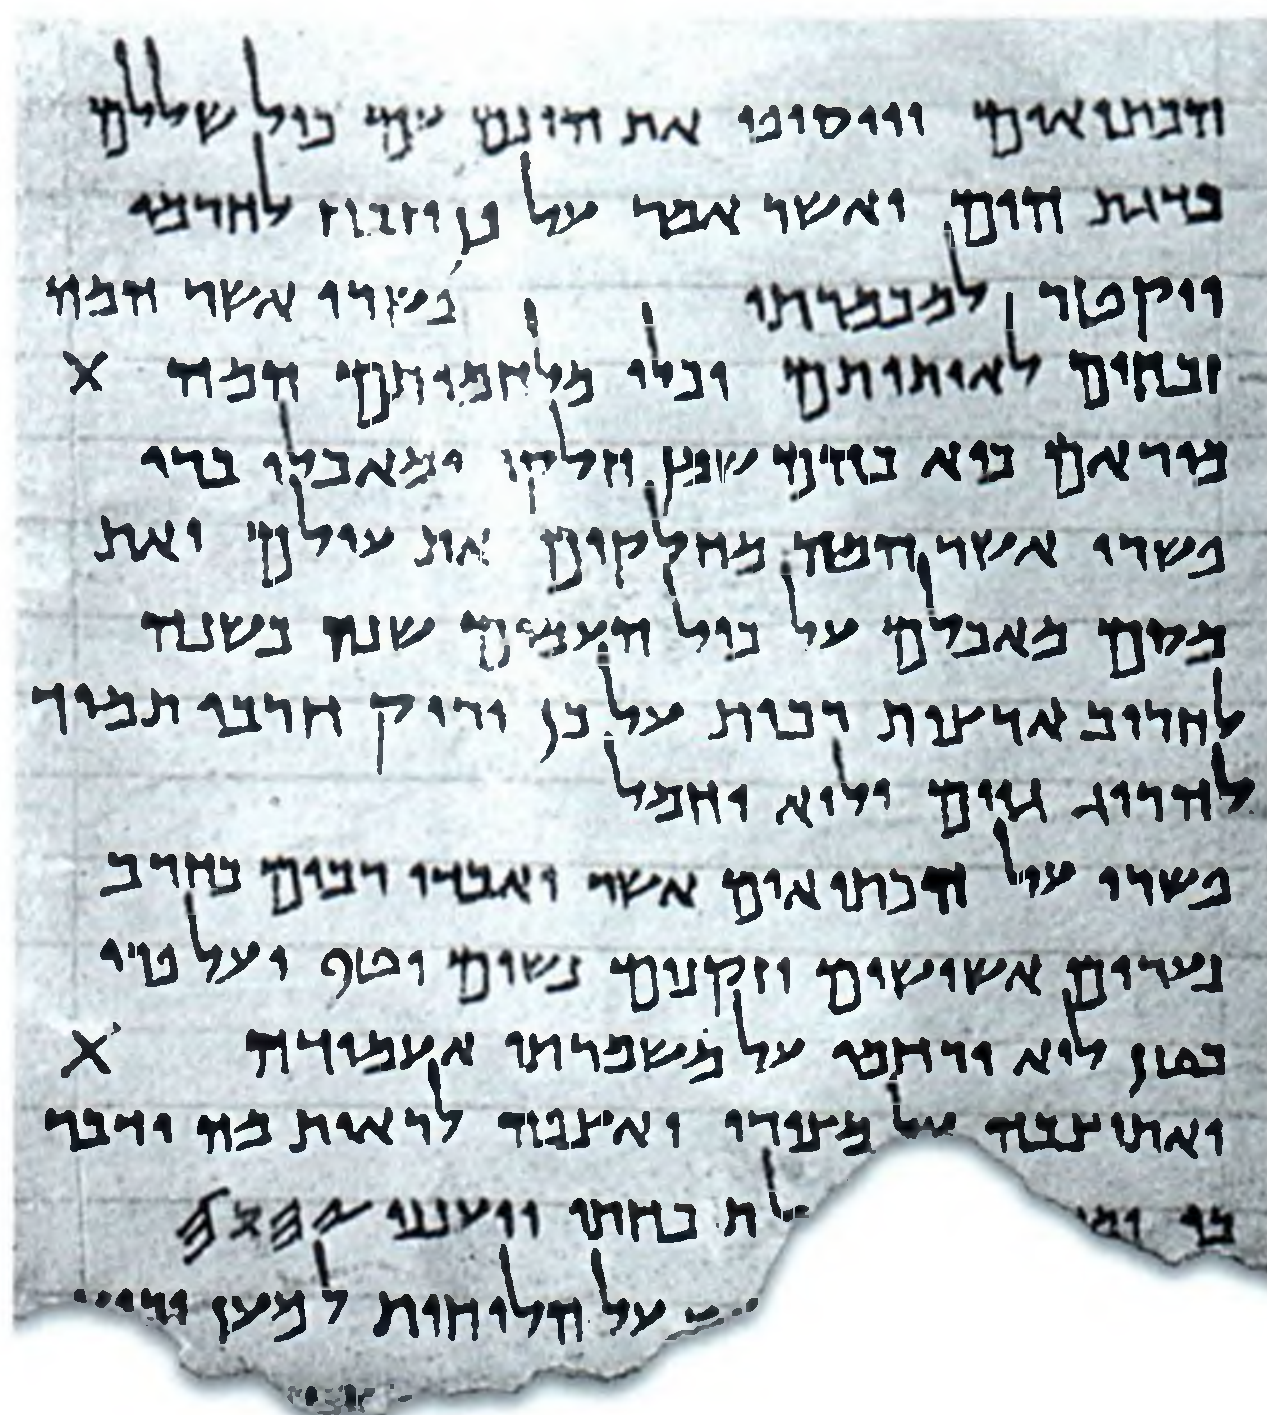 הכתיאים ויוסיפו את הונם עם כול שללם
כדגת הים ואשר אמר על כן יזבח לחרמו
ויקטר למכמרתו פשרו אשר המה
זבחים לאותותם וכלי מלחמותם המה X
מוראם כיא בהם שמן חלקו ומאכלו ברי
פשרו אשר המה מחלקים את עולם ואת
מסם מאכלם על כול העמים שנה בשנה
לחריב ארצות רבות על כן יריק חרבו תמיד
להרוג גוים ולוא יחמל
פשרו על הכתיאים אשר יאבדו רבים בחרב
נערים אשישים וזקנים נשים וטף ועל פרי
בטן לוא ירחמו על משמרתי אעמודה X
ואתיצבה על מצורי ואצפה לראות מה ידבר
בי ומה ת כחתי ויענני 𐤉𐤄𐤅𐤄
על הלוחות למען ירוץ